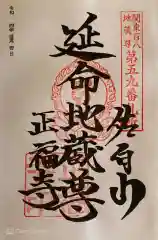 関東百八
地蔵尊
第五九番
佐白山
延命地蔵尊
正福寺